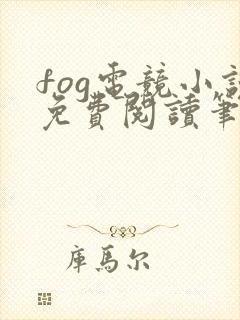 fog電競小說
免費閱讀筆
庫馬尔